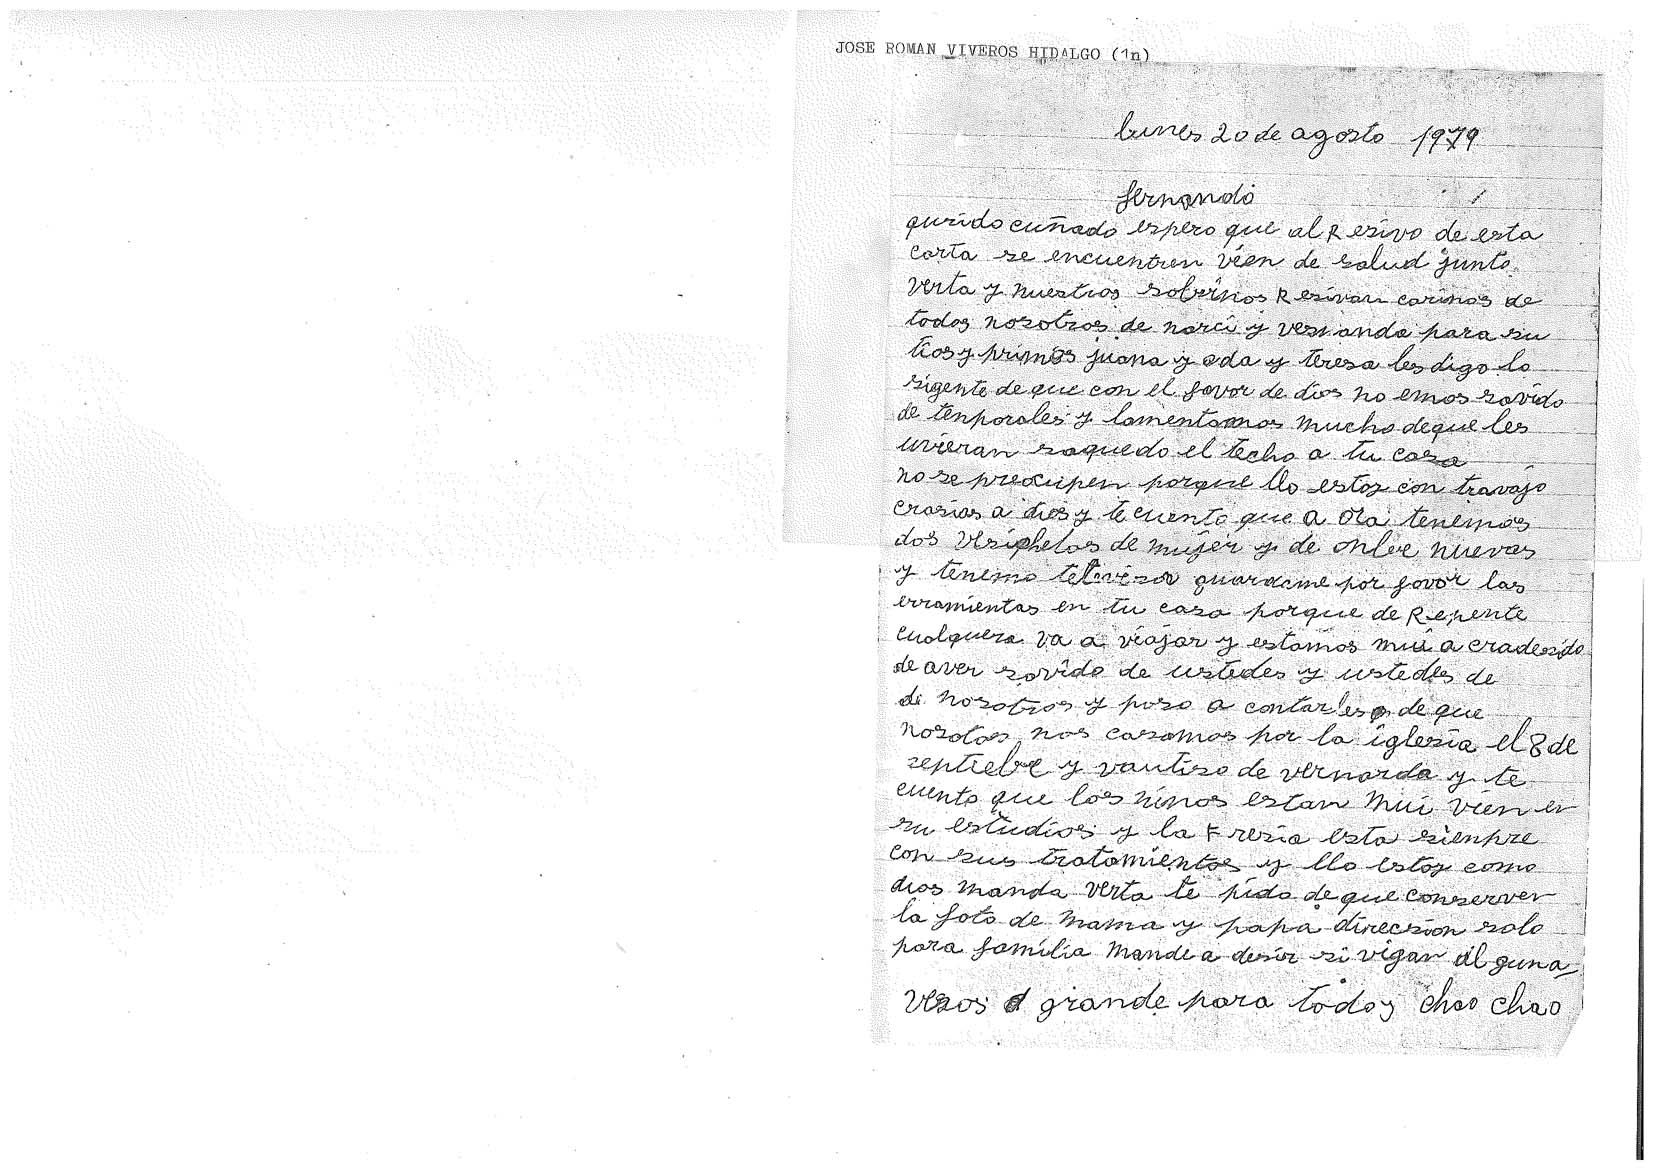 JOSE ROMAN VIVEROS HIDALGO (1n)
lunes 20 de agosto 1979
fernando
qurido cuñado espero que al Resivo de esta
carta se encuentren vien de salud junto
verta y nuestros sobrinos Resivan carinos de
todos nosotros de narci y vernanda para su
tios y primos juana y ada y teresa les digo lo
sigente de que con el favor de dios no emos savido
de tenporales y lamentamos mucho deque les
uvieran saquedo el techo a tu casa
no se preocupen porque llo estoy con travajo
crasias a dios y te cuento que a ora tenemos
dos vesicheletas de mujer y de onbre nuevas
y tenemo televisor guardame por favor las
erramientas en tu casa porque de Repente
cualquera va a viajar y estamos mui a cradesido
de aver savido de ustedes y ustedes de
de nosotros y paso a contarles de que
nosotos nos casamos por la iglesia el 8 de
sentiebre y vautiso de vernarda y te
cuento que los ninos estan mui vien en
su estudios y la Fresia esta sienpre
con sus tratamientos y llo estoy como
dios manda verta te pido de que conserven
la foto de mama y papa direcsion solo
para familia mande a desir si vigan alguna
vesos grande para todos chao chao